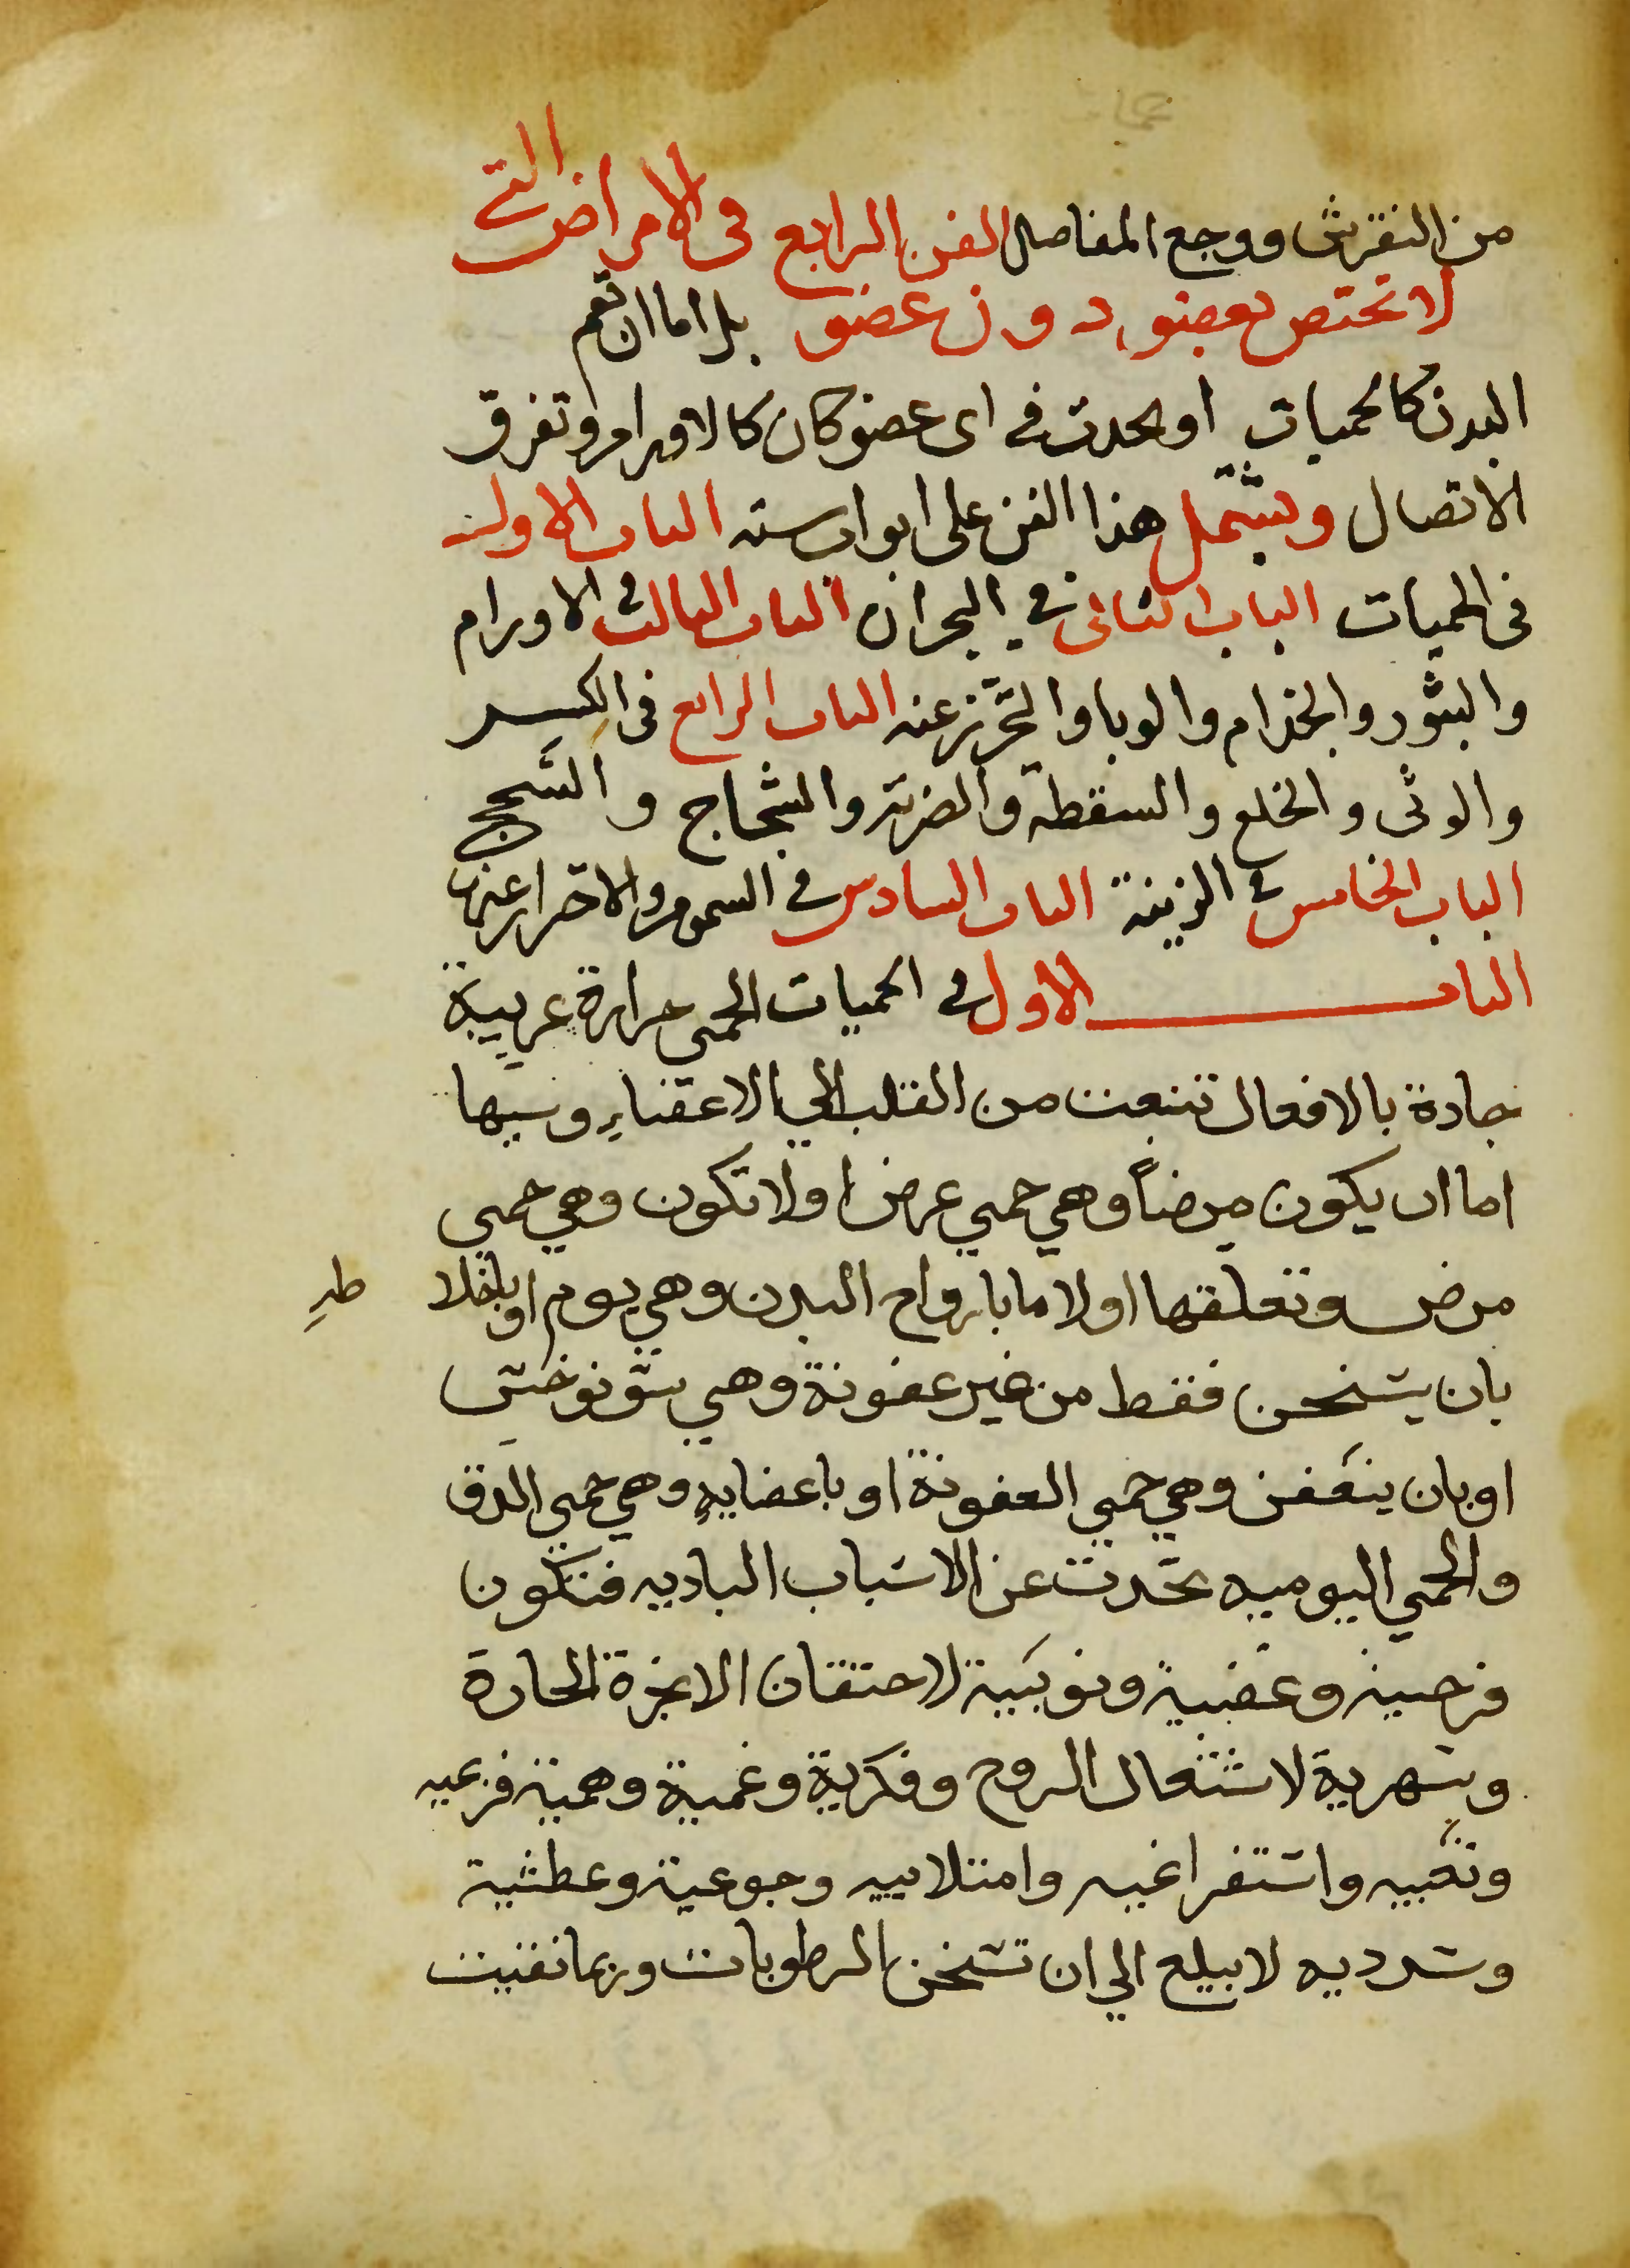 من النقرش ووجع المفاصل الفن الرابع فى الامراض التى
لا تختص بعضو دون عضو بل اما ان تعم
البدن كالحميات او يحدث في اى عضو كان كالاورام وتفرق
الاتصال ويشتمل هذا الفن على ابواب سته الباب الاول
فى الحميات الباب الثانى في البحران الباب الثالث في الاورام
والبثور والجذام والوبا والتحرز عنه الباب الرابع فى الكسر
والوثى والخلع والسقطة والضربة والشجاج والسحج
الباب الخامس في الزينة الباب السادس في السموم والاحتراز عنها
الباب الاول في الحميات الحمى حرارة غريبة
ضارة بالافعال تنبعث من القلب الي الاعضاء وسببها
اما ان يكون مرضاً وهي حمي عرض او لا تكون وهي حمي
مرض وتعلقها اولا اما بارواح البدن وهي يوم او باخلا طه
بان يتسخن فقط من غير عفونة وهي سونوخس
او بان يتعفن وهي حمي العفونة او باعضايه وهي حمي الدق
والحمي اليوميه تحدث عن الاسباب الباديه فتكون
فرحية وغضبية ونوبية لاحتقان الابخرة الحارة
وسهرية لاشتعال الروح وفكرية وغمية وهمية فزعيه
وتعبيه واستفراغيه وامتلاييه وجوعية وعطشية
وسدديه لا يبلغ الي ان تسخن الرطوبات وربما نقيت